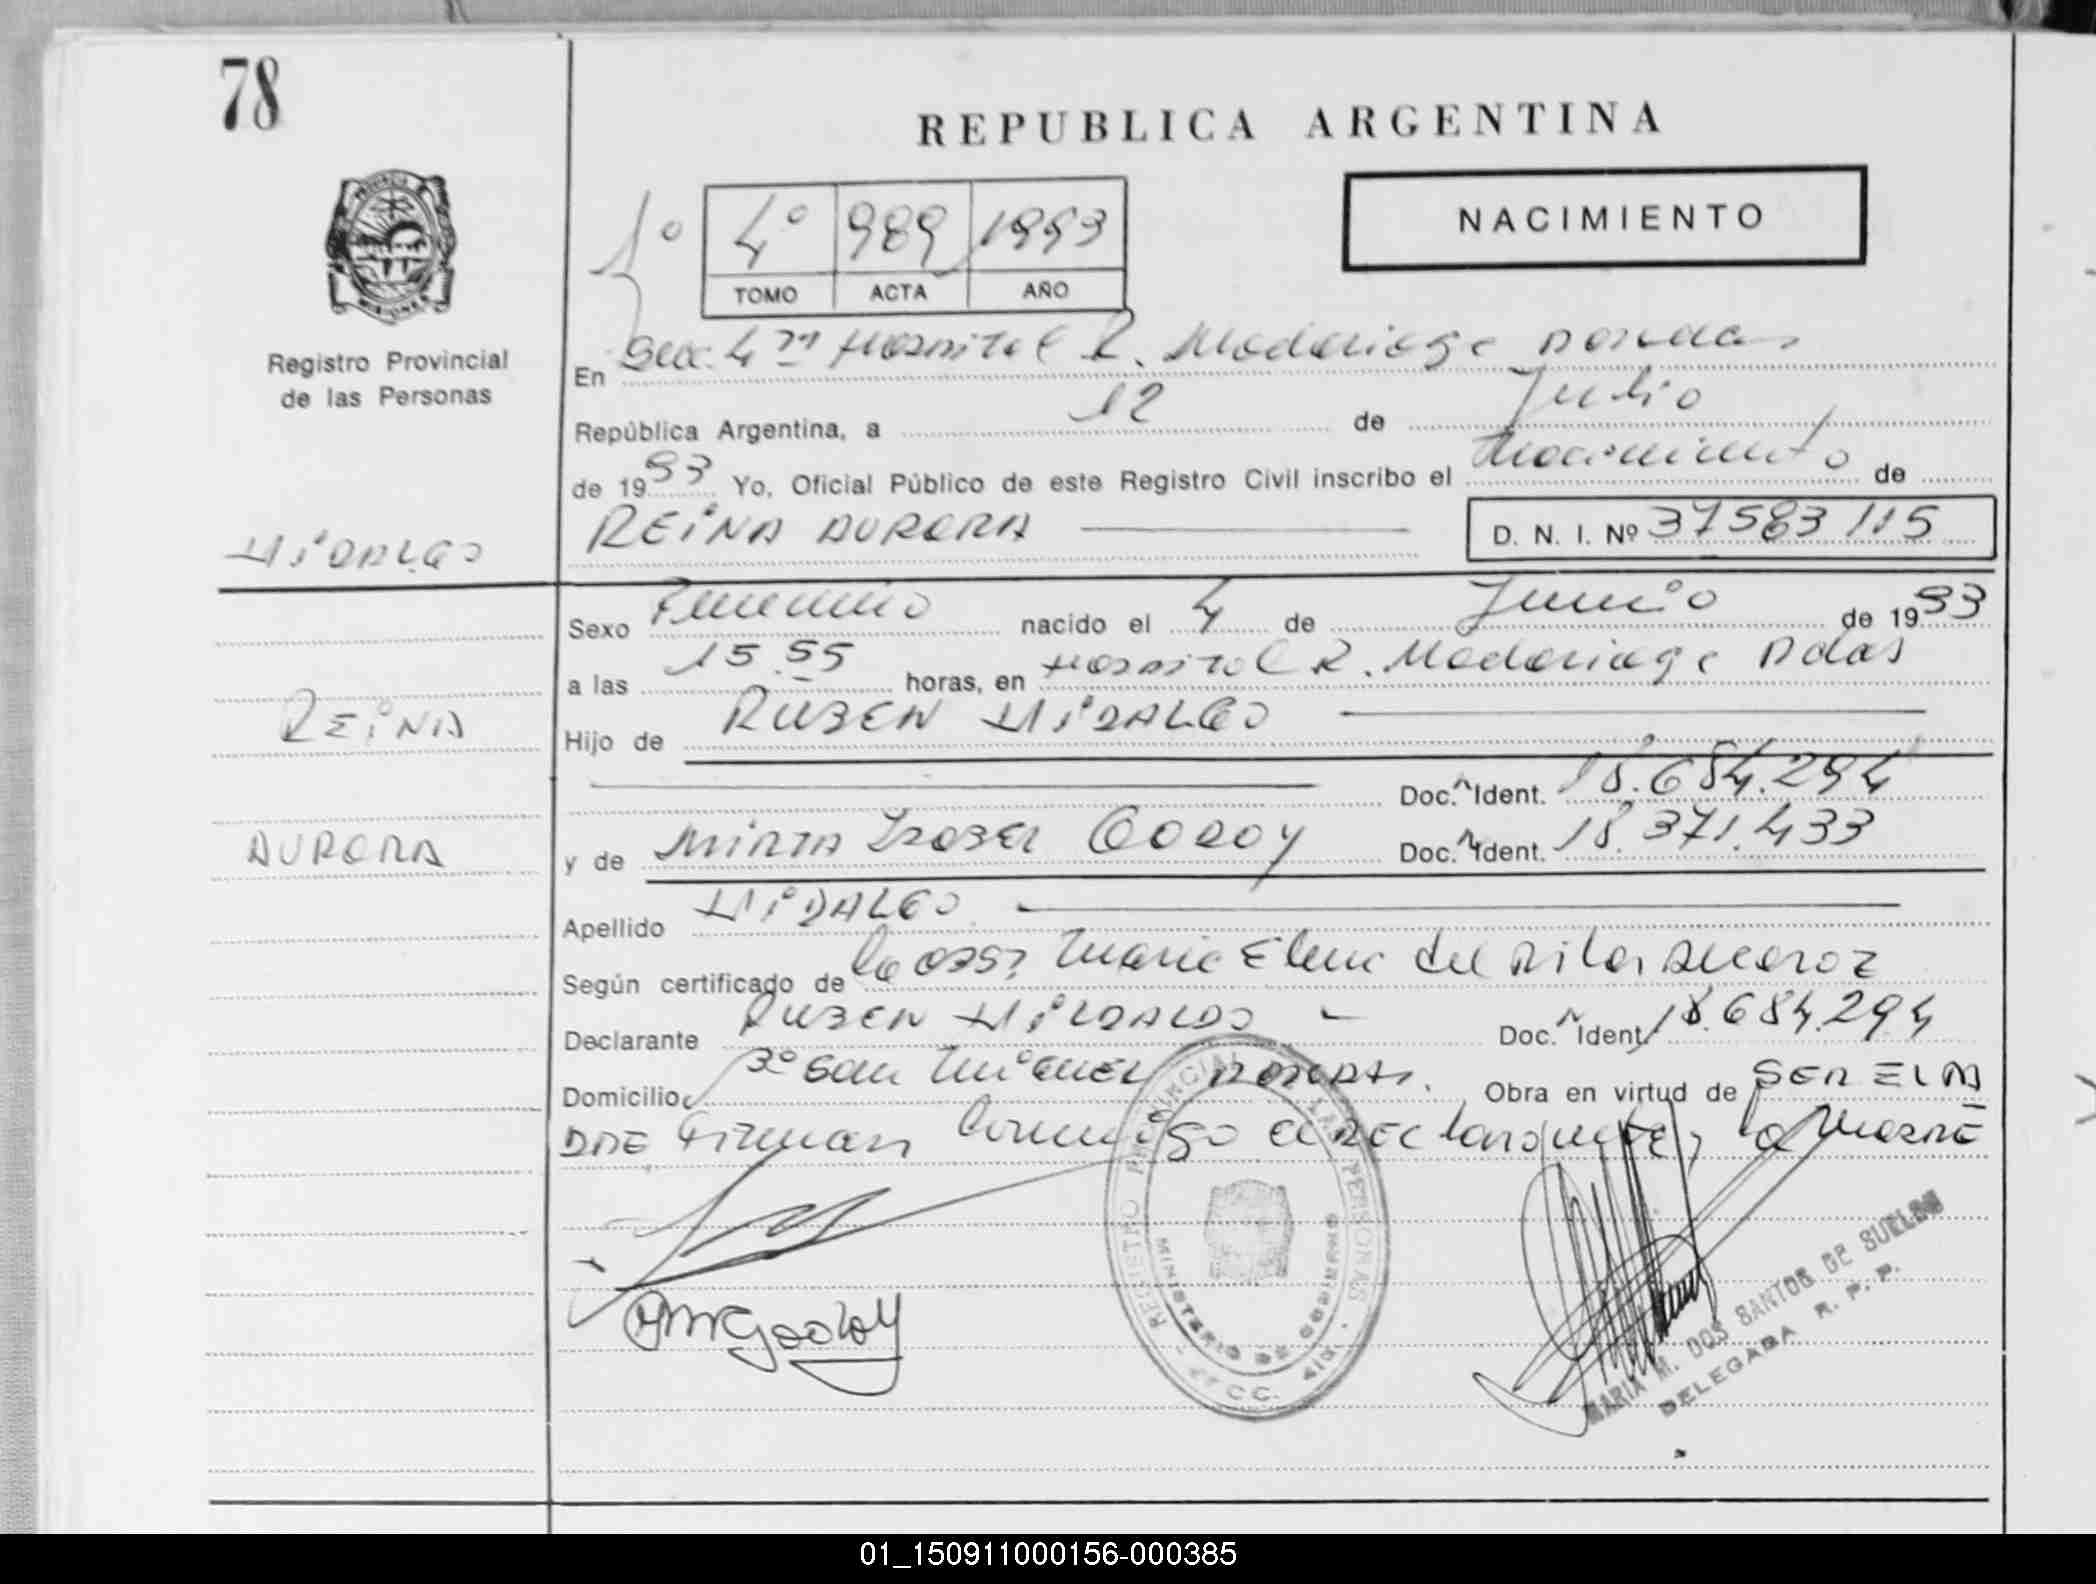 78
REPUBLICA ARGENTINA
NACIMIENTO
1º 4º 989 1993
TOMO ACTA AÑO
PROVINCIA DE MISIONES
Registro Provincial
de las Personas
En Secc. 4ta Hospital R. Madariaga Posadas
República Argentina, a 12 de Julio
de 1993 Yo, Oficial Público de este Registro Civil inscribo el Nacimiento de
HIDALGO REINA AURORA D. N. I. Nº 37583115
Sexo Femenino nacido el 4 de Junio de 1993
a las 15.55 horas, en Hospital R. Madariaga Pdas
REINA
Hijo de RUBEN HIDALGO
Doc. N Ident. 18.684.294
AURORA
y de MIRTA ISABEL GODOY Doc. N Ident. 18.371.433
Apellido HIDALGO
Según certificado de la Obst Maria Elena del Pilar Alcaraz
Declarante RUBEN HIDALGO Doc. N Ident. 18.684.294
Domicilio 3º San MIGUEL POSADAS. Obra en virtud de SER EL PA
DRE Firman Conmigo el DEClarante y la MADRE
MIGodoy
REGISTRO PROVINCIAL DE LAS PERSONAS
MINISTERIO DE GOBIERNO
MARIA M. DOS SANTOS DE SUELDO
DELEGADA R. P. P.
01_150911000156-000385